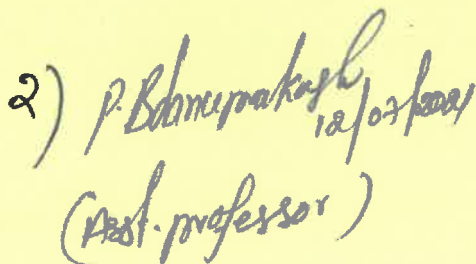 2) P. Bhanuprakash
12/07/2021
(Asst. professor)